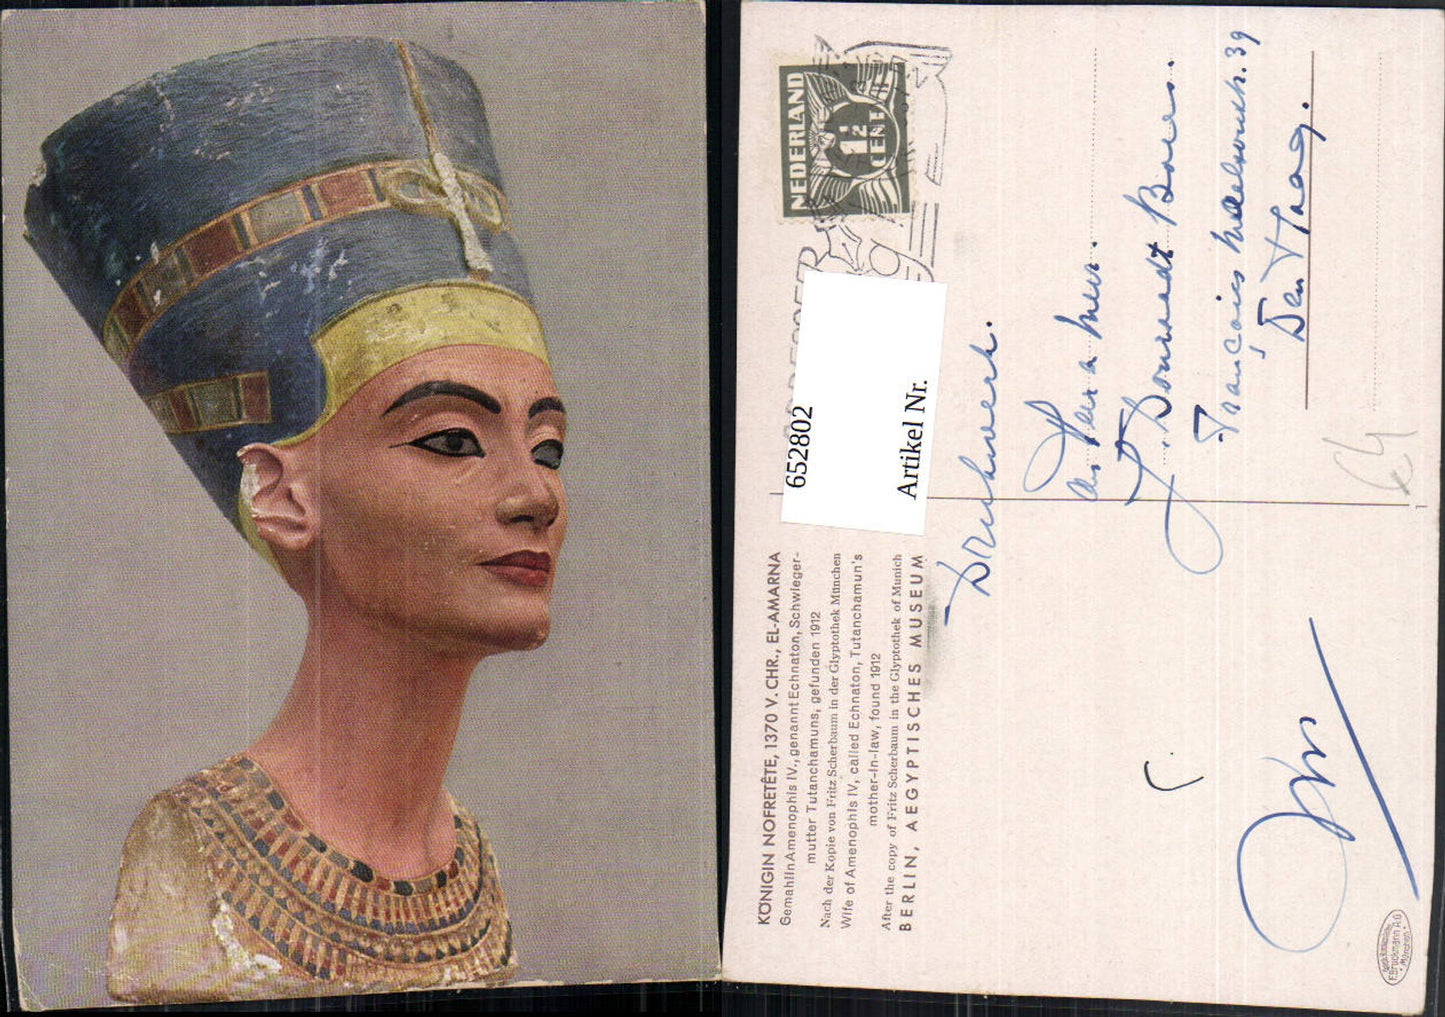 KÖNIGIN NOFRETÊTE, 1370 V. CHR., EL-AMARNA
Gemahlin Amenophis IV., genannt Echnaton, Schwieger-
mutter Tutanchamuns, gefunden 1912
Nach der Kopie von Fritz Scherbaum in der Glyptothek München
Wife of Amenophis IV, called Echnaton, Tutanchamun's
mother-in-law, found 1912
After the copy of Fritz Scherbaum in the Glyptothek of Munich
BERLIN, AEGYPTISCHES MUSEUM
652802
Artikel Nr.
NEDERLAND
1½
CENT
Drukwerk.
Den Haag.
39
1
F. Bruckmann A.G
München